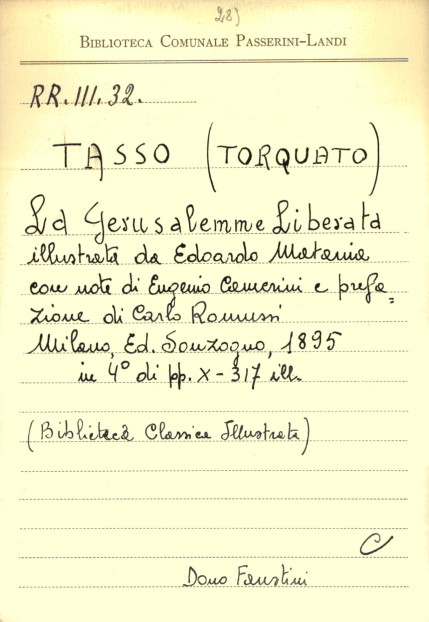 28)
BIBLIOTECA COMUNALE PASSERINI-LANDI
RR. III. 32.
TASSO (TORQUATO)
La Gerusalemme Liberata
illustrata da Edoardo Matania
con note di Eugenio Camerini e prefa=
zione di Carlo Romussi
Milano, Ed. Sonzogno, 1895
in 4° di pp. X - 317 ill.
(Biblioteca Classica Illustrata)
C
Dono Faustini